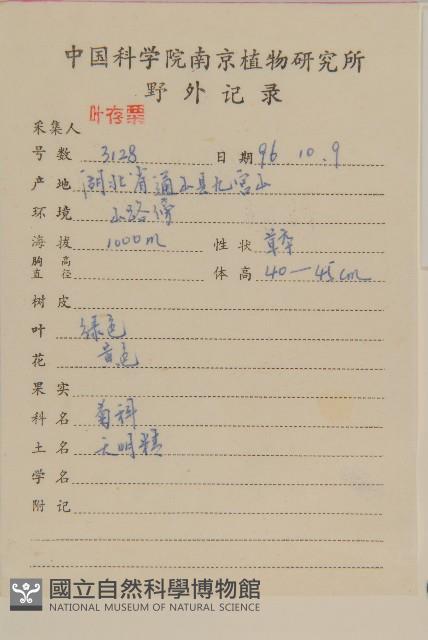 中国科学院南京植物研究所
野外记录
采集人 叶存粟
号数 3128 日期 96 10.9
产地 湖北省通山县九宫山
环境 山路傍
海拔 1000m 性状 草本
胸高直径 体高 40—45cm
树皮
叶 绿色
花 黄色
果实
科名 菊科
土名 天明精
学名
附记
國立自然科學博物館
NATIONAL MUSEUM OF NATURAL SCIENCE